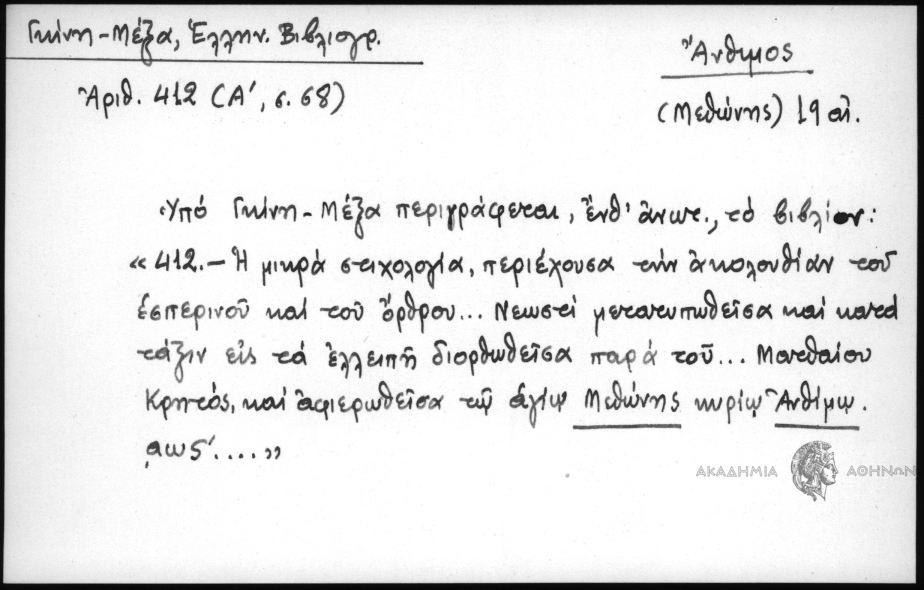 Γκίνη-Μέξα, Ἑλλην. Βιβλιογρ.
Ἄνθιμος
Ἀριθ. 412 (Α΄, σ. 68)
(Μεθώνης) 19 αἰ.
Ὑπό Γκίνη-Μέξα περιγράφεται, ἔνθ' ἀνωτ., τό βιβλίον:
«412.— Ἡ μικρά στιχολογία, περιέχουσα τήν ἀκολουθίαν τοῦ
ἑσπερινοῦ καί τοῦ ὄρθρου... Νεωστί μετατυπωθεῖσα καί κατά
τάξιν εἰς τά ἐλλειπῆ διορθωθεῖσα παρά τοῦ... Ματθαίου
Κρητός, καί ἀφιερωθεῖσα τῷ ἁγίῳ Μεθώνης κυρίῳ Ἀνθίμῳ.
͵αως΄....»
ΑΚΑΔΗΜΙΑ ΑΘΗΝΩΝ